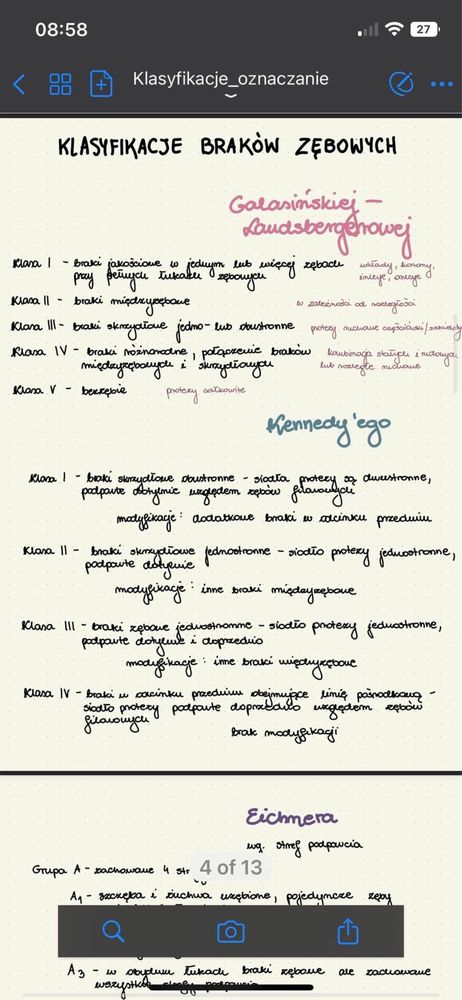 08:58
27
Klasyfikacje_oznaczanie
KLASYFIKACJE BRAKÓW ZĘBOWYCH
Galasińskiej -
Landsbergerowej
Klasa I - braki jakościowe w jednym lub więcej zębach wkłady, korony,
przy pełnych łukach zębowych inleye, onleye
Klasa II - braki międzyzębowe w zależności od rozległości
Klasa III - braki skrzydłowe jedno- lub obustronne protezy ruchome częściowe/szkieletowe
Klasa IV - braki różnorodne, połączenie braków kombinacja stałych i ruchomych
międzyzębowych i skrzydłowych lub rozległe ruchome
Klasa V - bezzębie protezy całkowite
Kennedy'ego
Klasa I - braki skrzydłowe obustronne - siodła protezy są dwustronne,
podparte dotylnie względem zębów filarowych
modyfikacje: dodatkowe braki w odcinku przednim
Klasa II - braki skrzydłowe jednostronne - siodło protezy jednostronne,
podparte dotylnie
modyfikacje: inne braki międzyzębowe
Klasa III - braki zębowe jednostronne - siodło protezy jednostronne,
podparte dotylnie i doprzednio
modyfikacje: inne braki międzyzębowe
Klasa IV - braki w odcinku przednim obejmujące linię pośrodkową -
siodło protezy podparte doprzednio względem zębów
filarowych
brak modyfikacji
Eichnera
wg. stref podparcia
Grupa A - zachowane 4 str
4 of 13
A1 - szczęka i żuchwa uzębione, pojedyncze zęby
A3 - w obydwu łukach braki zębowe ale zachowane
wszystkie strefy podparcia